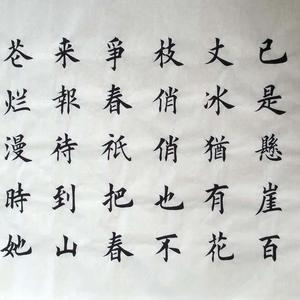 已是懸崖百
丈冰猶有花
枝俏俏也不
爭春祇把春
来報待到山
芲烂漫時她